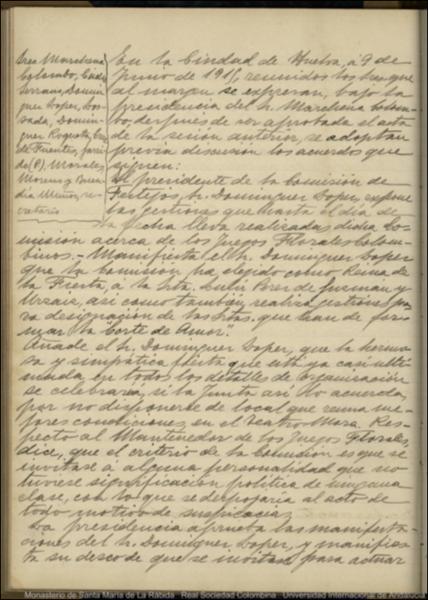 Sres Marchena
Colombo, Cádiz
Serrano, Domin-
guez Lopez, Po-
sada, Domin-
guez Roqueta,
de Fuentes, Garri-
do (P), Morales,
Moreno y Buen-
día Muñoz, se-
cretario
En la Ciudad de Huelva, a 9 de
Junio de 1915, reunidos los Sres. que
al margen se expresan, bajo la
presidencia del Sr. Marchena Colom-
bo, después de ser aprobada el acta
de la sesión anterior, se adoptan
previa discusión los acuerdos que
siguen:
El presidente de la Comisión de
Festejos, Sr. Dominguez Lopez, expone
las gestiones que hasta el día de
la fecha lleva realizadas dicha Co-
misión acerca de los Juegos Florales Colom-
binos.- Manifiesta el Sr. Dominguez Lopez
que la Comisión ha elegido como Reina de
la Fiesta, a la Srta. Lulú Perez de Guzman y
Urzaiz, así como también realiza gestiones pa-
ra designación de las Srtas. que han de for-
mar la "Corte de Amor".
Añade el Sr. Dominguez Lopez, que la hermo-
sa y simpática fiesta que está ya casi ulti-
mada en todos los detalles de organización
se celebrará, si la Junta así lo acuerda,
por no disponerse de local que reuna me-
jores condiciones, en el Teatro Mora. Res-
pecto al Mantenedor de los Juegos Florales,
dice, que el criterio de la Comisión es que se
invitase a alguna personalidad que no
tuviese significación política de ninguna
clase, con lo que se despojaría al acto de
todo motivo de suspicacias.
La presidencia aprueba las manifesta-
ciones del Sr. Dominguez Lopez, y manifies-
ta su deseo de que se invitase para actuar
Monasterio de Santa María de La Rábida - Real Sociedad Colombina - Universidad Internacional de Andalucía